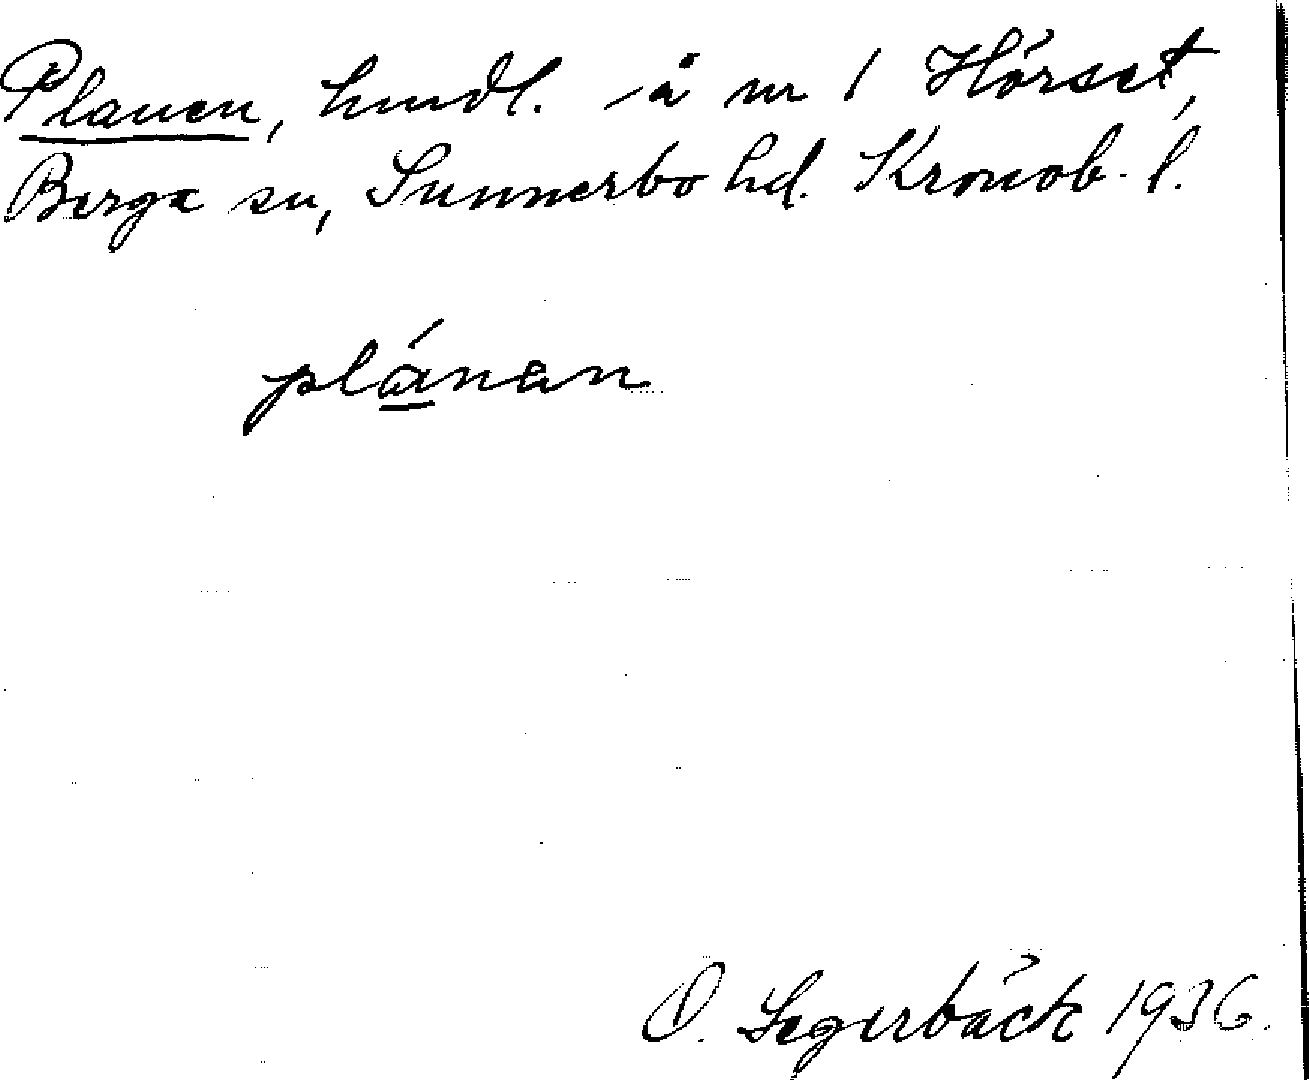 Planen, hmdl. å nr 1 Hörset,
Berga sn, Sunnerbo hd. Kronob. l.
plánan
O. Segerbäck 1936.